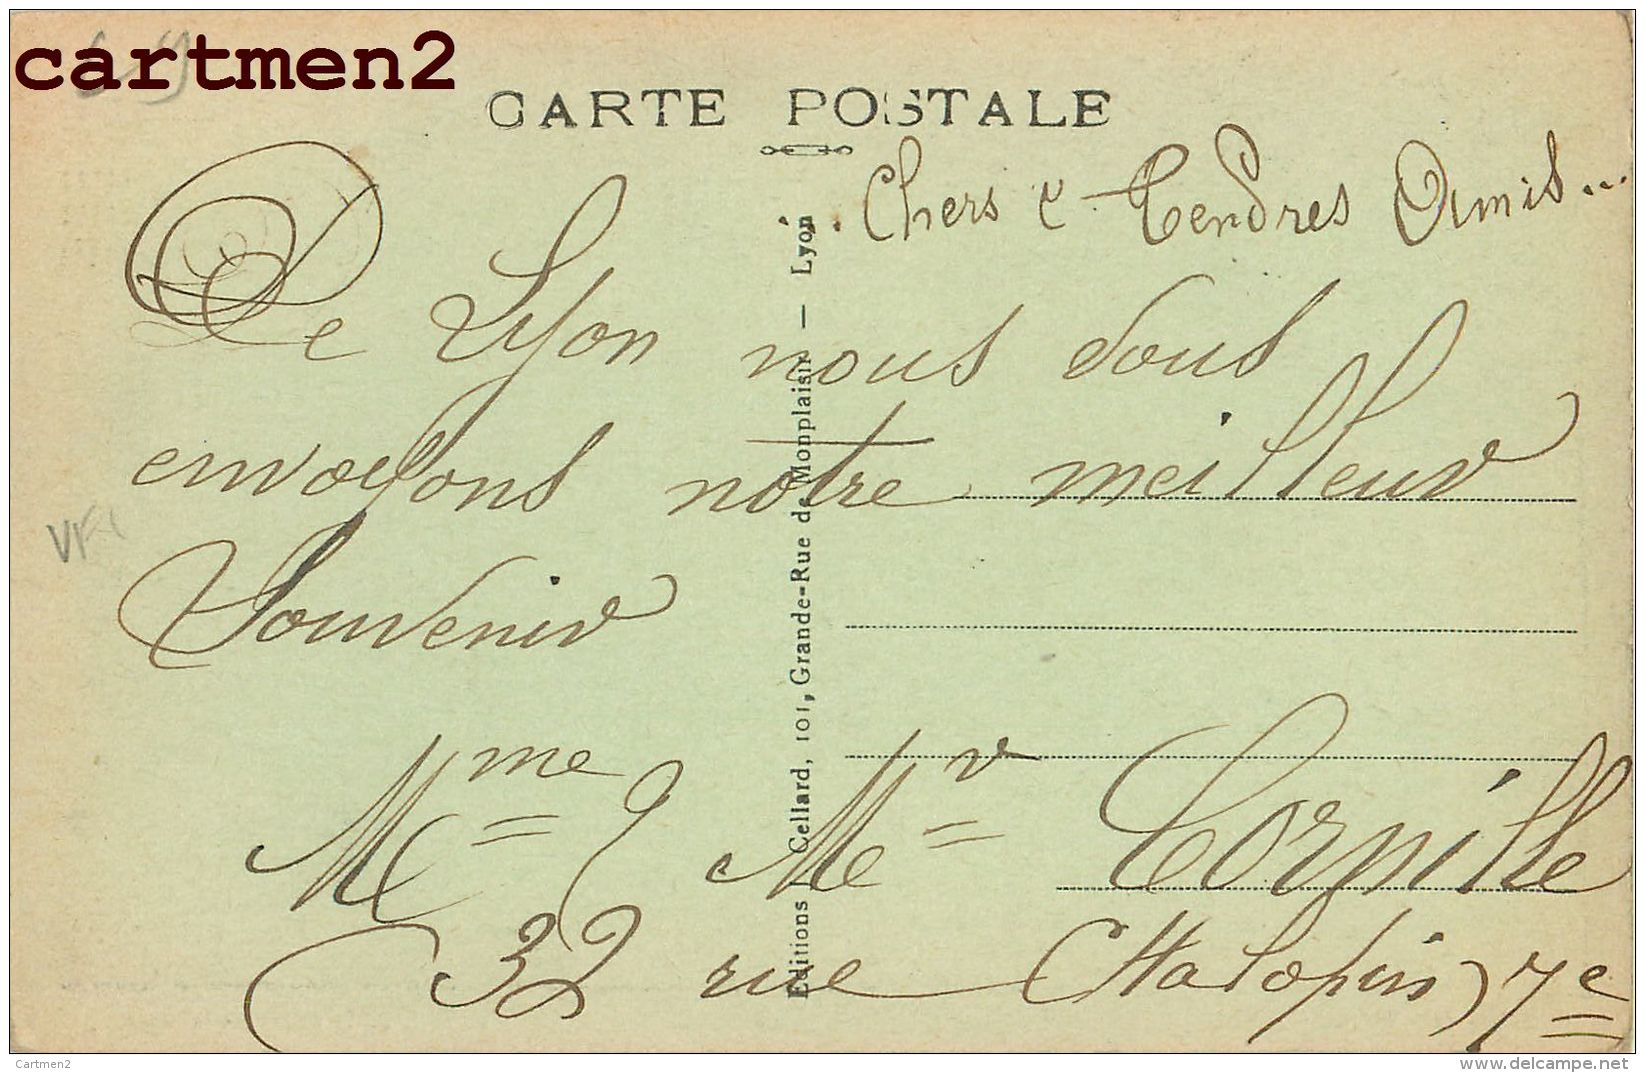 cartmen2
69
CARTE POSTALE
Chers & Tendres Amis...
De Lyon nous vous
envoyons notre meilleur
Souvenir
Mme & Mr Cornille
32 rue Chalopin, 7e
Editions J. Cellard, 101, Grande-Rue de Monplaisir — Lyon
Cartmen2
www.delcampe.net